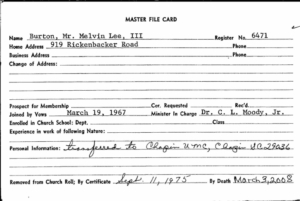 MASTER FILE CARD
Name Burton, Mr. Melvin Lee, III Register No. 6471
Home Address 919 Rickenbacker Road Phone
Business Address Phone
Change of Address:
Prospect for Membership Cor. Requested Rec'd
Joined by Vows March 19, 1967 Minister in Charge Dr. C. L. Moody, Jr.
Enrolled in Church School: Dept. Class
Experience in work of following Nature:
Personal Information: transferred to Clopin UMC, Clopin SC 29036
Removed from Church Roll; By Certificate Sept 11, 1975 By Death March 3, 2008